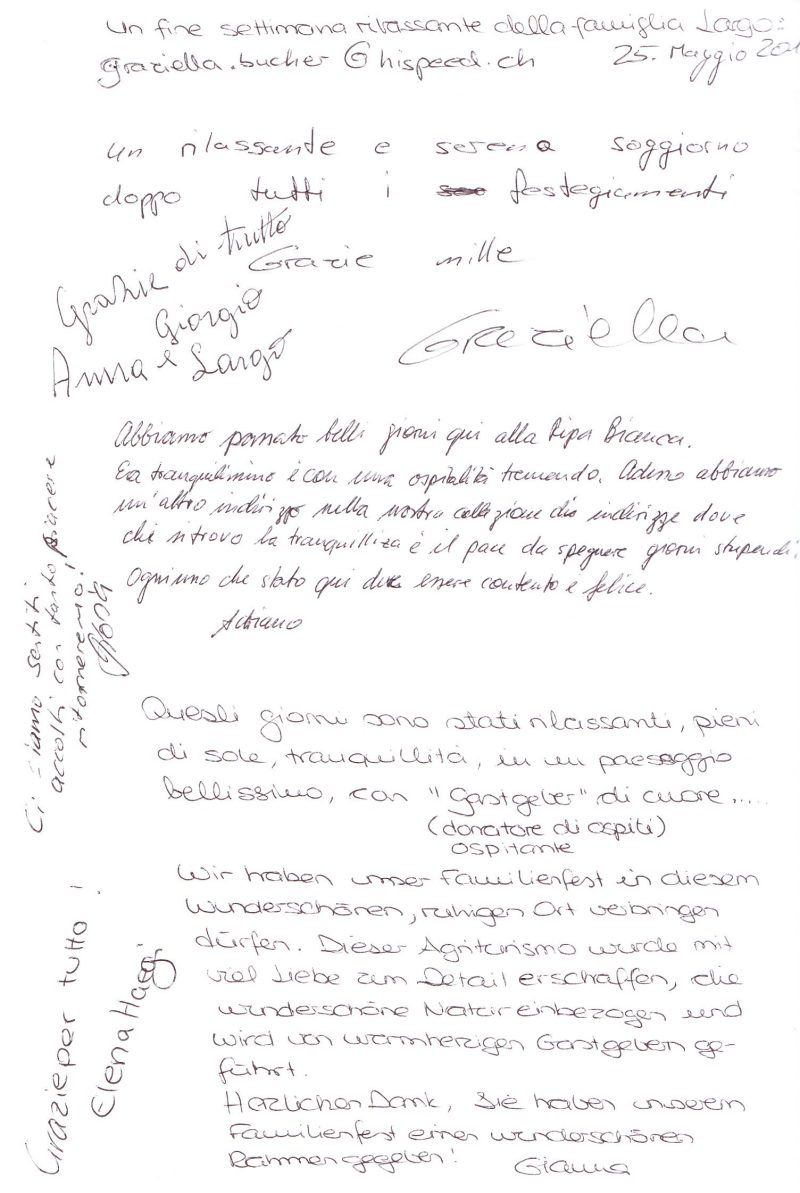 un fine settimana rilassante della famiglia Largo:
graziella.bucher@hispeed.ch 25. Maggio 201
un rilassante e serena soggiorno
doppo tutti i festegiamenti
Grazie mille
Graziella
Grazie di tutto
Giorgio
Anna e Largo
Abbiamo passato belli giorni qui alla Ripa Bianca.
Era tranquilissimo è con una ospitalità tremendo. Adesso abbiamo
un'altro indirizzo nella nostra collezione di indirizze dove
che ritrovo la tranquilliza è il pace da spegnere giorni stupendi.
Ogniuno che stato qui deve essere contento e felice.
Adriano
Ci siamo sentiti
accolti con tanto piacere
ritorneremo!
Questi giorni sono stati rilassanti, pieni
di sole, tranquillità, in un paesaggio
bellissimo, con "Gastgeber" di cuore.....
(donatore di ospiti)
ospitante
Wir haben unser Familienfest in diesem
wunderschönen, ruhigen Ort verbringen
dürfen. Dieser Agriturismo wurde mit
viel Liebe zum Detail erschaffen, die
wunderschöne Natur einbezogen und
wird von warmherzigen Gastgeben ge-
führt.
Herzlichen Dank, Sie haben unserem
Familienfest einen wunderschönen
Rahmen gegeben! Gianna
Grazie per tutto!
Elena Haegi